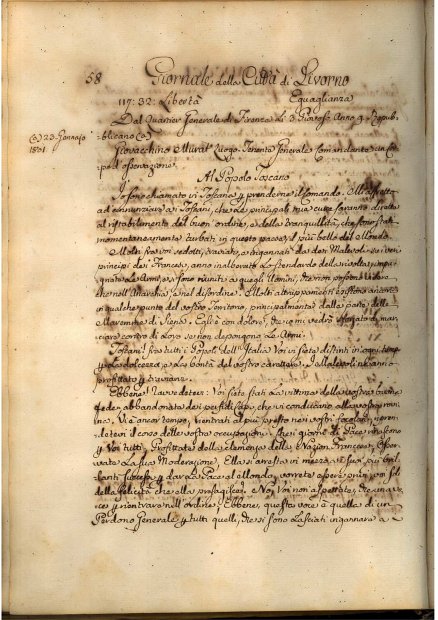 58 Giornale della Città di Livorno
117: 32: Libertà Eguaglianza
Dal Quartier Generale di Firenze li 3 Anno 9 Repub-
blicano (a)
(a) 23. Gennajo
1801
Giovacchino Murat Luogo-Tenente Generale Comandante in Ca-
po d'osservazione
Al Popolo Toscano
Io sono chiamato in Toscana a prenderne il Comando.
ad annunziarvi o Toscani, che le principali mie cure saranno dirette
al ristabilimento del buon ordine, e della tranquillità, che sono stati
momentaneamente turbati in questo paese, il più bello del Mondo.
Molti fra voi sedotti, traviati, e ingannati da dei Malevoli
principj dei Francesi, anno inalberato lo stendardo della rivolta
le Armi, e si sono riuniti a quegli Uomini, che non possono
che nell'Anarchia, e nel disordine. Molti attruppamenti esistono ancora
in qualche punto del vostro Territorio, principalmente dalla parte delle
Maremme di Siena. Egli è con dolore, che io mi vedrò sforzato di mar-
ciare contro di Loro se non depongono le Armi.
Toscani! fra tutti i Popoli dell'Italia Voi vi siete distinti in ogni tempo
la dolcezza, e la bontà del vostro carattere. I Malevoli ne anno
profittato
Ebbene! Ravvedetevi: Voi siete stati la vittima della vostra buona
fede, abbandonate dei perfidi Capi, che vi conducevano alla vostra rovi-
na. Vi è ancor tempo, rientrate al più presto nei vostri focolari, ripren-
dete il corso delle vostre occupazioni. Che i giorni di Pace rinascano
Voi tutti. Profittate della clemenza della Nazion Francese.
vate la sua Moderazione, Ella si arresta in mezzo ai suoi più bril-
lanti successi dar la Pace al Mondo, vorreste essere privi voi soli
della felicità che ella No, Voi non aspettate, che una
voce rientrare nell'ordine. Ebbene, questa voce è quella di un
Perdono Generale tutti quelli, che si sono lasciati ingannare a